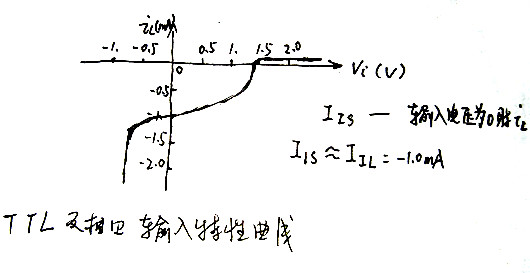 i_L(mA)
-1. -0.5 0.5 1. 1.5 2.0
0
Vi (V)
-0.5
-1
-1.5
-2.0
I_IS — 输入电压为0时 i_L
I_IS ≈ I_IL = -1.0mA
TTL 反相口 输入特性曲线